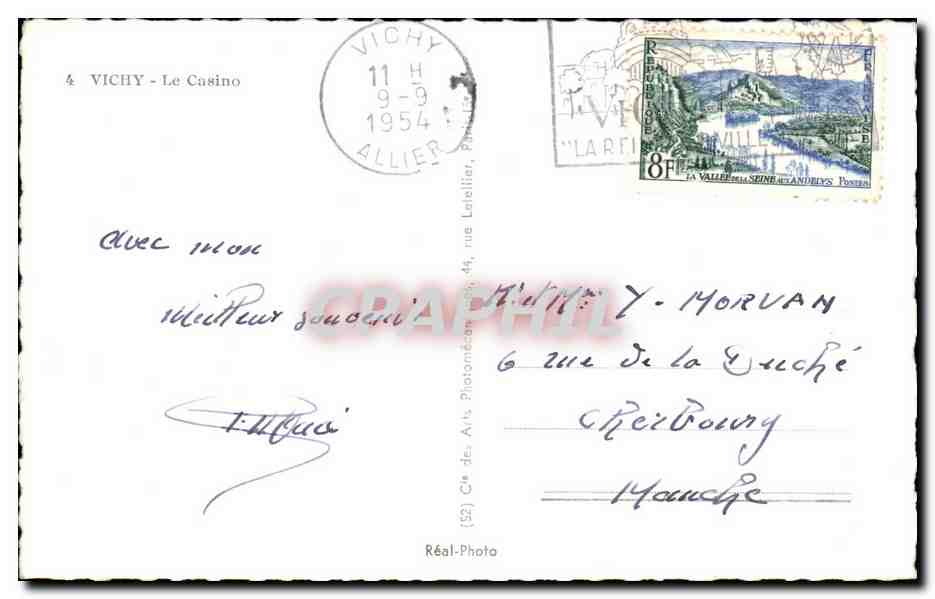 4 VICHY - Le Casino
VICHY
11 H
9-9
1954
ALLIER
"LA REI
VILLE
REPUBLIQUE
FRANCAISE
8F
LA VALLÉE DE LA SEINE AUX ANDELYS POSTES
avec mon
meilleur souvenir
CPARHIL
Mr et Mme Y - MORVAN
6 rue de la Duché
Cherbourg
Manche
(52) Cie des Arts Photomécaniques, 44, rue Letellier, Paris
Réal-Photo